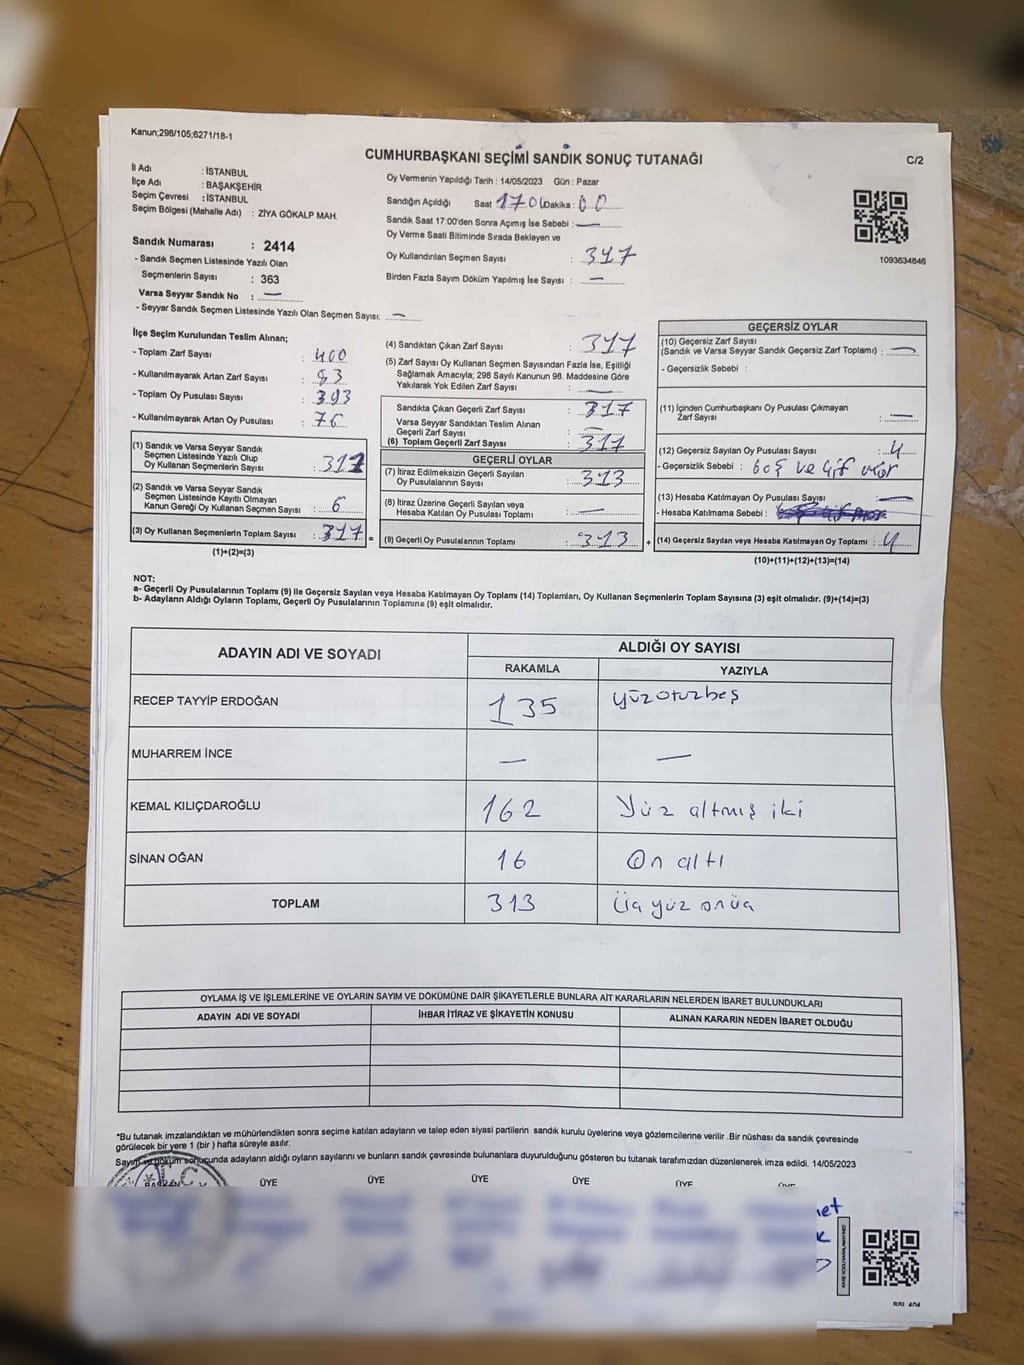 Kanun;298/105;6271/18-1
CUMHURBAŞKANI SEÇİMİ SANDIK SONUÇ TUTANAĞI
C/2
İl Adı : İSTANBUL
İlçe Adı : BAŞAKŞEHİR
Seçim Çevresi : İSTANBUL
Seçim Bölgesi (Mahalle Adı) : ZİYA GÖKALP MAH.
Sandık Numarası : 2414
- Sandık Seçmen Listesinde Yazılı Olan
Seçmenlerin Sayısı : 363
Varsa Seyyar Sandık No : —
- Seyyar Sandık Seçmen Listesinde Yazılı Olan Seçmen Sayısı: —
Oy Vermenin Yapıldığı Tarih : 14/05/2023 Gün : Pazar
Sandığın Açıldığı Saat 17.00 Dakika : 00
Sandık Saat 17:00'den Sonra Açılmış İse Sebebi : —
Oy Verme Saati Bitiminde Sırada Bekleyen ve
Oy Kullandırılan Seçmen Sayısı : 317
Birden Fazla Sayım Döküm Yapılmış İse Sayısı : —
1093634846
İlçe Seçim Kurulundan Teslim Alınan;
- Toplam Zarf Sayısı : 400
- Kullanılmayarak Artan Zarf Sayısı : 83
- Toplam Oy Pusulası Sayısı : 393
- Kullanılmayarak Artan Oy Pusulası : 76
(1) Sandık ve Varsa Seyyar Sandık
Seçmen Listesinde Yazılı Olup
Oy Kullanan Seçmenlerin Sayısı :
(2) Sandık ve Varsa Seyyar Sandık
Seçmen Listesinde Kayıtlı Olmayan
Kanun Gereği Oy Kullanan Seçmen Sayısı : 6
(3) Oy Kullanan Seçmenlerin Toplam Sayısı : 317
(1)+(2)=(3)
(4) Sandıktan Çıkan Zarf Sayısı : 317
(5) Zarf Sayısı Oy Kullanan Seçmen Sayısından Fazla İse, Eşitliği
Sağlamak Amacıyla; 298 Sayılı Kanunun 98. Maddesine Göre
Yakılarak Yok Edilen Zarf Sayısı : —
Sandıkta Çıkan Geçerli Zarf Sayısı : 317
Varsa Seyyar Sandıktan Teslim Alınan
Geçerli Zarf Sayısı : —
(6) Toplam Geçerli Zarf Sayısı : 317
GEÇERLİ OYLAR
(7) İtiraz Edilmeksizin Geçerli Sayılan
Oy Pusulalarının Sayısı : 313
(8) İtiraz Üzerine Geçerli Sayılan veya
Hesaba Katılan Oy Pusulası Toplamı : —
= (9) Geçerli Oy Pusulalarının Toplamı : 313
GEÇERSİZ OYLAR
(10) Geçersiz Zarf Sayısı
(Sandık ve Varsa Seyyar Sandık Geçersiz Zarf Toplamı) : —
- Geçersizlik Sebebi :
(11) İçinden Cumhurbaşkanı Oy Pusulası Çıkmayan
Zarf Sayısı : —
(12) Geçersiz Sayılan Oy Pusulası Sayısı : 4
- Geçersizlik Sebebi : boş ve çift mür
(13) Hesaba Katılmayan Oy Pusulası Sayısı : —
- Hesaba Katılmama Sebebi :
+ (14) Geçersiz Sayılan veya Hesaba Katılmayan Oy Toplamı : 4
(10)+(11)+(12)+(13)=(14)
NOT:
a- Geçerli Oy Pusulalarının Toplamı (9) ile Geçersiz Sayılan veya Hesaba Katılmayan Oy Toplamı (14) Toplamları, Oy Kullanan Seçmenlerin Toplam Sayısına (3) eşit olmalıdır. (9)+(14)=(3)
b- Adayların Aldığı Oyların Toplamı, Geçerli Oy Pusulalarının Toplamına (9) eşit olmalıdır.
ADAYIN ADI VE SOYADI
ALDIĞI OY SAYISI
RAKAMLA YAZIYLA
RECEP TAYYİP ERDOĞAN 135 yüzotuzbeş
MUHARREM İNCE — —
KEMAL KILIÇDAROĞLU 162 Yüz altmış iki
SİNAN OĞAN 16 On altı
TOPLAM 313 Üç yüz onüç
OYLAMA İŞ VE İŞLEMLERİNE VE OYLARIN SAYIM VE DÖKÜMÜNE DAİR ŞİKAYETLERLE BUNLARA AİT KARARLARIN NELERDEN İBARET BULUNDUKLARI
ADAYIN ADI VE SOYADI İHBAR İTİRAZ VE ŞİKAYETİN KONUSU ALINAN KARARIN NEDEN İBARET OLDUĞU
*Bu tutanak imzalandıktan ve mühürlendikten sonra seçime katılan adayların ve talep eden siyasi partilerin sandık kurulu üyelerine veya gözlemcilerine verilir .Bir nüshası da sandık çevresinde
görülecek bir yere 1 (bir ) hafta süreyle asılır.
Sayım ve döküm sonucunda adayların aldığı oyların sayılarını ve bunların sandık çevresinde bulunanlara duyurulduğunu gösteren bu tutanak tarafımızdan düzenlenerek imza edildi. 14/05/2023
BAŞKAN ÜYE ÜYE ÜYE ÜYE ÜYE ÜYE